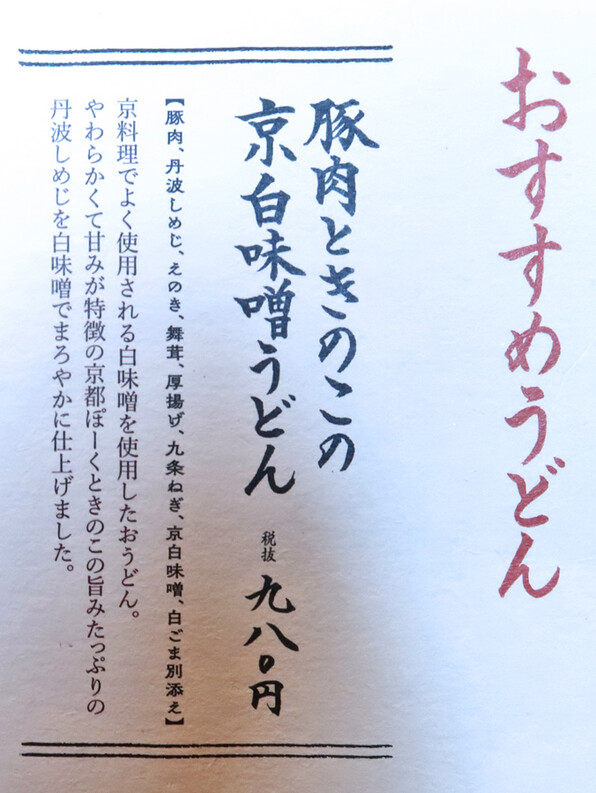 おすすめうどん
豚肉ときのこの
京白味噌うどん 税抜 九八〇円
【豚肉、丹波しめじ、えのき、舞茸、厚揚げ、九条ねぎ、京白味噌、白ごま別添え】
京料理でよく使用される白味噌を使用したおうどん。
やわらかくて甘みが特徴の京都ぽーくときのこの旨みたっぷりの
丹波しめじを白味噌でまろやかに仕上げました。